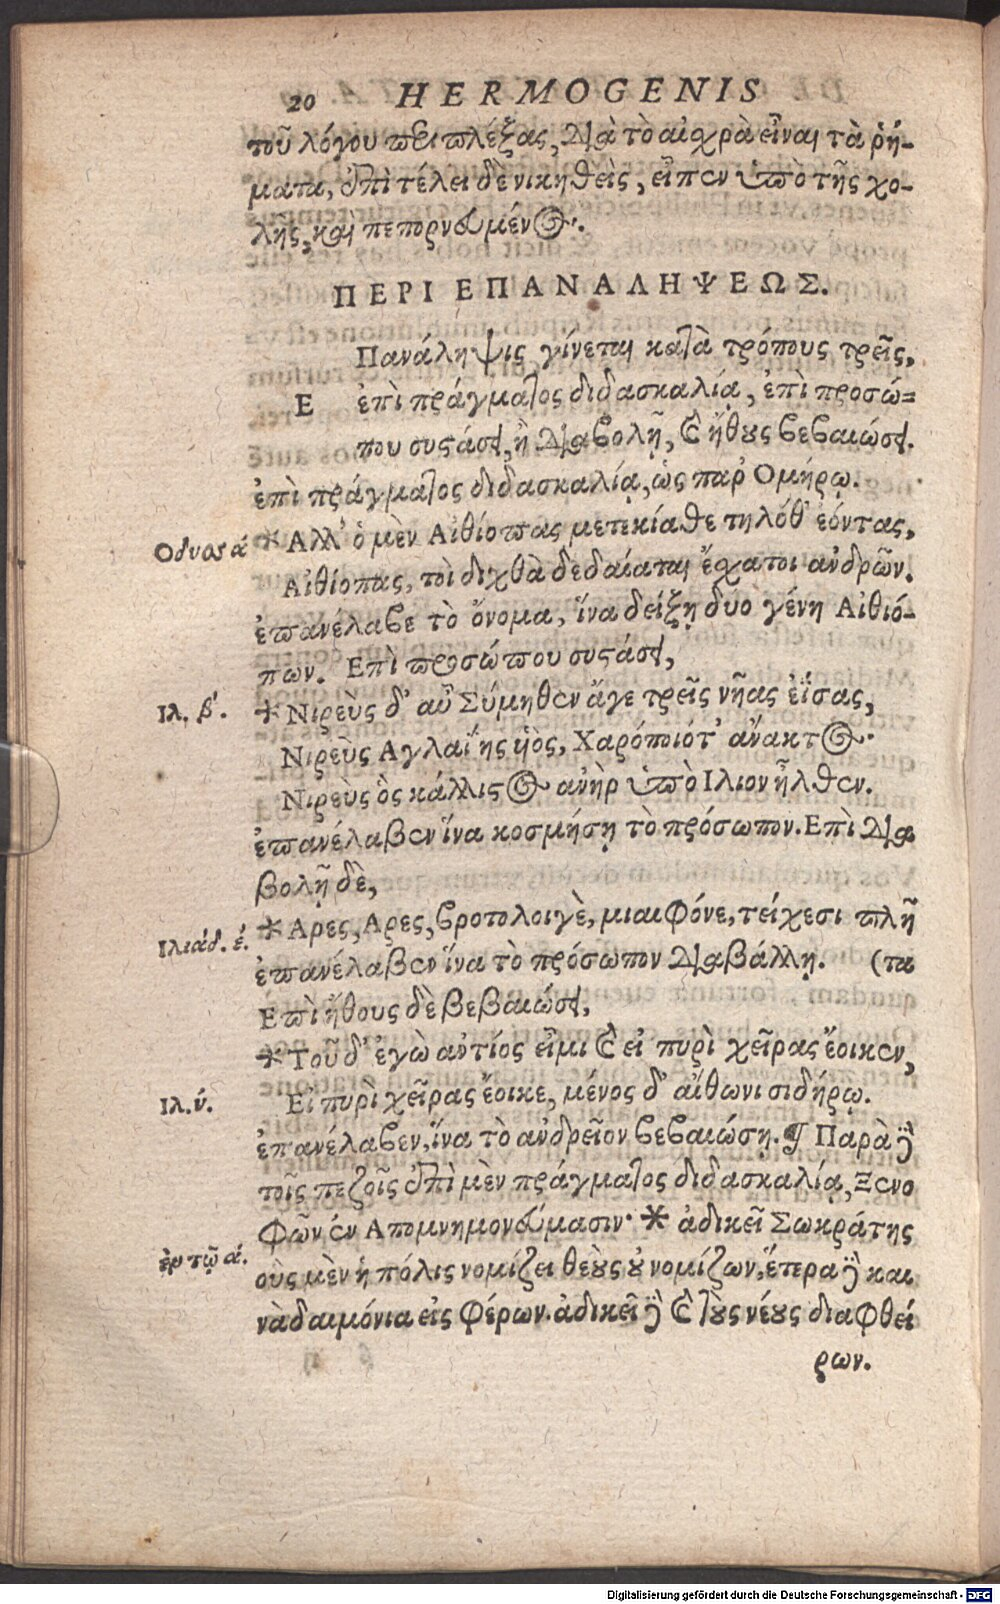 20 HERMOGENIS
τοῦ λόγου περιπλέξας, διὰ τὸ αἰσχρὰ εἶναι τὰ ῥή-
ματα, ἐπὶ τέλει δὲ νικηθεὶς, εἶπεν ὑπὸ τῆς χο-
λῆς, καὶ πεπορνευμένος.
ΠΕΡΙ ΕΠΑΝΑΛΗΨΕΩΣ.
Ε Πανάληψις γίνεται κατὰ τρόπους τρεῖς,
ἐπὶ πράγματος διδασκαλίᾳ, ἐπὶ προσώ-
που συστάσει, ἢ διαβολῇ, καὶ ἤθους βεβαιώσει.
ἐπὶ πράγματος διδασκαλίᾳ, ὡς παρ' Ομήρῳ.
Οδυασ ά * Αλλ' ὁ μὲν Αἰθίοπας μετεκίαθε τηλόθ' ἐόντας,
Αἰθίοπας, τοὶ διχθὰ δεδαίαται ἔσχατοι ανδρῶν.
ἐπανέλαβε τὸ ὄνομα, ἵνα δείξῃ δύο γένη Αἰθιό-
πων. Επὶ προσώπου συστάσει,
Ιλ. β'. * Νιρεὺς δ' αὖ Σύμηθεν ἄγε τρεῖς νῆας ἐΐσας,
Νιρεὺς Αγλαΐης ὑὸς, Χαρόποιότ' ἄνακτος.
Νιρεὺς ὃς κάλλιστος ανὴρ ὑπὸ Ιλιον ἦλθεν.
ἐπανέλαβεν ἵνα κοσμήσῃ τὸ πρόσωπον. Επὶ δια
βολῇ δὲ,
Ιλιάδ. έ. * Αρες, Αρες, βροτολοιγὲ, μιαιφόνε, τείχεσι πλῆ
ἐπανέλαβεν ἵνα τὸ πρόσωπον διαβάλλῃ. (τα
Επὶ ἤθους δὲ βεβαιώσει,
* Τοῦ δ' ἐγὼ αντίος εἶμι καὶ εἰ πυρὶ χεῖρας ἔοικεν,
Ιλ. ύ. Εἰ πυρὶ χεῖρας ἔοικε, μένος δ' αἴθωνι σιδήρῳ.
ἐπανέλαβεν, ἵνα τὸ ανδρεῖον βεβαιώσῃ. ¶ Παρὰ δὲ
τοῖς πεζοῖς ἐπὶ μὲν πράγματος διδασκαλίᾳ, Ξενο
φῶν ἐν Απομνημονεύμασιν· * ἀδικεῖ Σωκράτης
ἐν τῷ ά. οὓς μὲν ἡ πόλις νομίζει θεοὺς οὐ νομίζων, ἕτερα δὲ και
νὰ δαιμόνια εἰς φέρων. ἀδικεῖ δὲ καὶ τοὺς νέους διαφθεί
ρων.
Digitalisierung gefördert durch die Deutsche Forschungsgemeinschaft - DFG